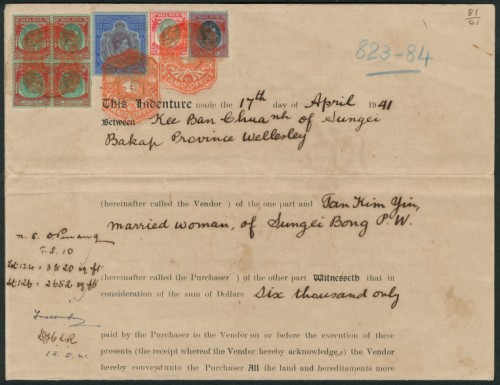 81
41
823-84
MALAYA MALAYA MALAYA
This Indenture made the 17th day of April 1941
Between Kee Ban Chuanh of Sungei
Bakap Province Wellesley
(hereinafter called the Vendor ) of the one part and Tan Kim Yin,
married woman, of Sungei Bong P.W.
T.S. 10
Lot 124 = 3820 sq ft
Lot 126 = 2652 sq ft
(hereinafter called the Purchaser ) of the other part Witnesseth that in
consideration of the sum of Dollars Six thousand only
paid by the Purchaser to the Vendor on or before the execution of these
presents (the receipt whereof the Vendor hereby acknowledges) the Vendor
hereby conveys unto the Purchaser All the land and hereditaments more